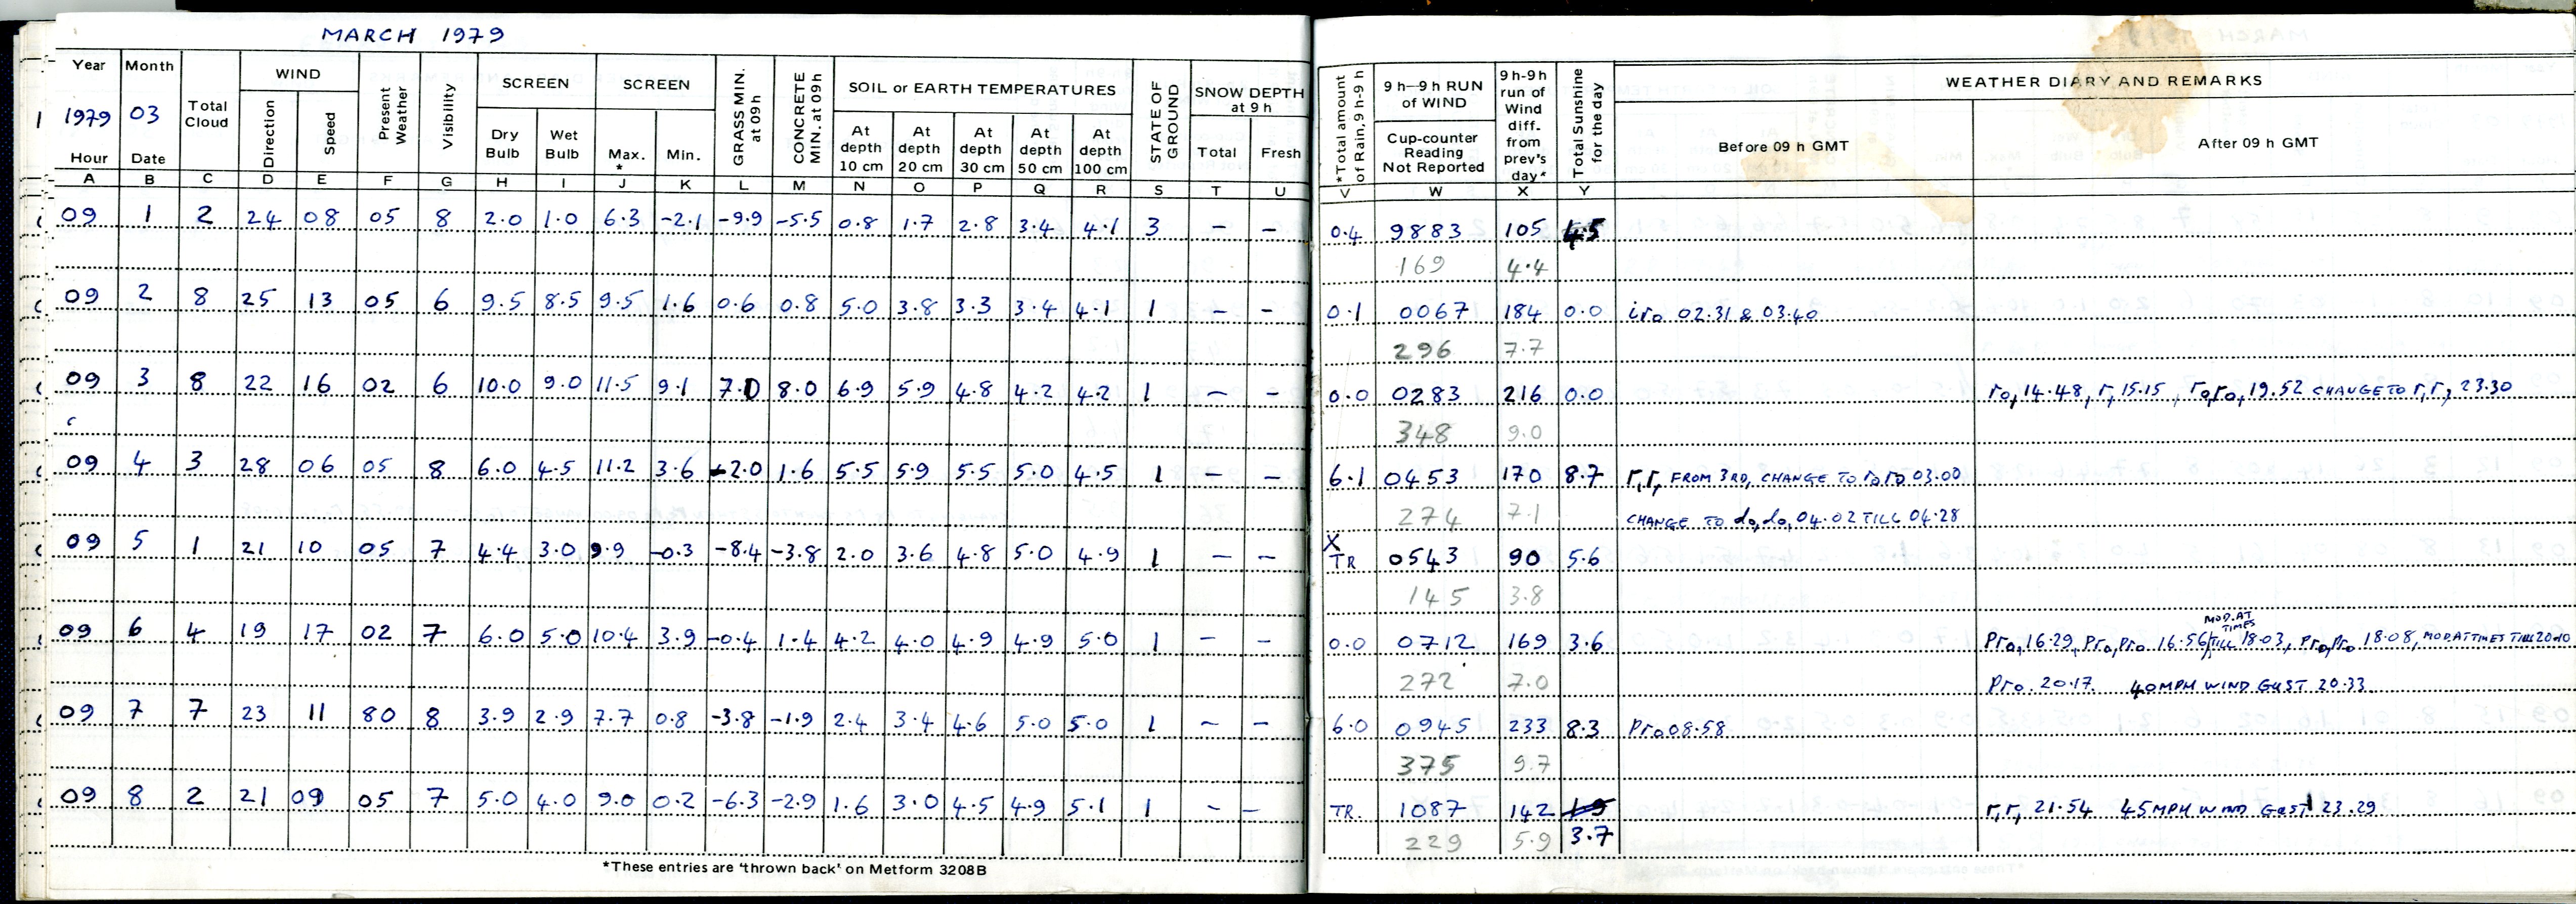 MARCH 1979
Year Month Total Cloud WIND Direction Speed Present Weather Visibility SCREEN Dry Bulb Wet Bulb SCREEN Max. * Min. GRASS MIN. at 09h CONCRETE MIN. at 09h SOIL or EARTH TEMPERATURES At depth 10 cm At depth 20 cm At depth 30 cm At depth 50 cm At depth 100 cm STATE OF GROUND SNOW DEPTH at 9 h Total Fresh *Total amount of Rain, 9 h-9 h 9 h—9 h RUN of WIND Cup-counter Reading Not Reported 9 h-9 h run of Wind diff. from prev's day* Total Sunshine for the day WEATHER DIARY AND REMARKS Before 09 h GMT After 09 h GMT
1 1979 03
Hour Date
A B C D E F G H I J K L M N O P Q R S T U V W X Y
09 1 2 24 08 05 8 2.0 1.0 6.3 -2.1 -9.9 -5.5 0.8 1.7 2.8 3.4 4.1 3 - - 0.4 9883 105 4.5
169 4.4
09 2 8 25 13 05 6 9.5 8.5 9.5 1.6 0.6 0.8 5.0 3.8 3.3 3.4 4.1 1 - - 0.1 0067 184 0.0 iro 02.31 & 03.40
296 7.7
09 3 8 22 16 02 6 10.0 9.0 11.5 9.1 7.0 8.0 6.9 5.9 4.8 4.2 4.2 1 - - 0.0 0283 216 0.0 ro, 14.48, r, 15.15, roro, 19.52 CHANGE TO r,r, 23.30
348 9.0
09 4 3 28 06 05 8 6.0 4.5 11.2 3.6 -2.0 1.6 5.5 5.9 5.5 5.0 4.5 1 - - 6.1 0453 170 8.7 r,r, FROM 3RD, CHANGE TO roro 03.00
274 7.1 CHANGE TO do,do, 04.02 TILL 04.28
09 5 1 21 10 05 7 4.4 3.0 9.9 -0.3 -8.4 -3.8 2.0 3.6 4.8 5.0 4.9 1 - - X TR 0543 90 5.6
145 3.8
09 6 4 19 17 02 7 6.0 5.0 10.4 3.9 -0.4 1.4 4.2 4.0 4.9 4.9 5.0 1 - - 0.0 0712 169 3.6 Pro, 16.29, Pro, Pro 16.56 MOD. AT TIMES TILL 18.03, Pro,Pro 18.08, MOD. AT TIMES TILL 20.10
272 7.0 Pro. 20.17. 40MPH WIND GUST 20.33
09 7 7 23 11 80 8 3.9 2.9 7.7 0.8 -3.8 -1.9 2.4 3.4 4.6 5.0 5.0 1 - - 6.0 0945 233 8.3 Pro 08.58
375 9.7
09 8 2 21 09 05 7 5.0 4.0 9.0 0.2 -6.3 -2.9 1.6 3.0 4.5 4.9 5.1 1 - - TR. 1087 142 1.9 r,r, 21.54 45MPH WIND GUST 23.29
229 5.9 3.7
*These entries are 'thrown back' on Metform 3208B